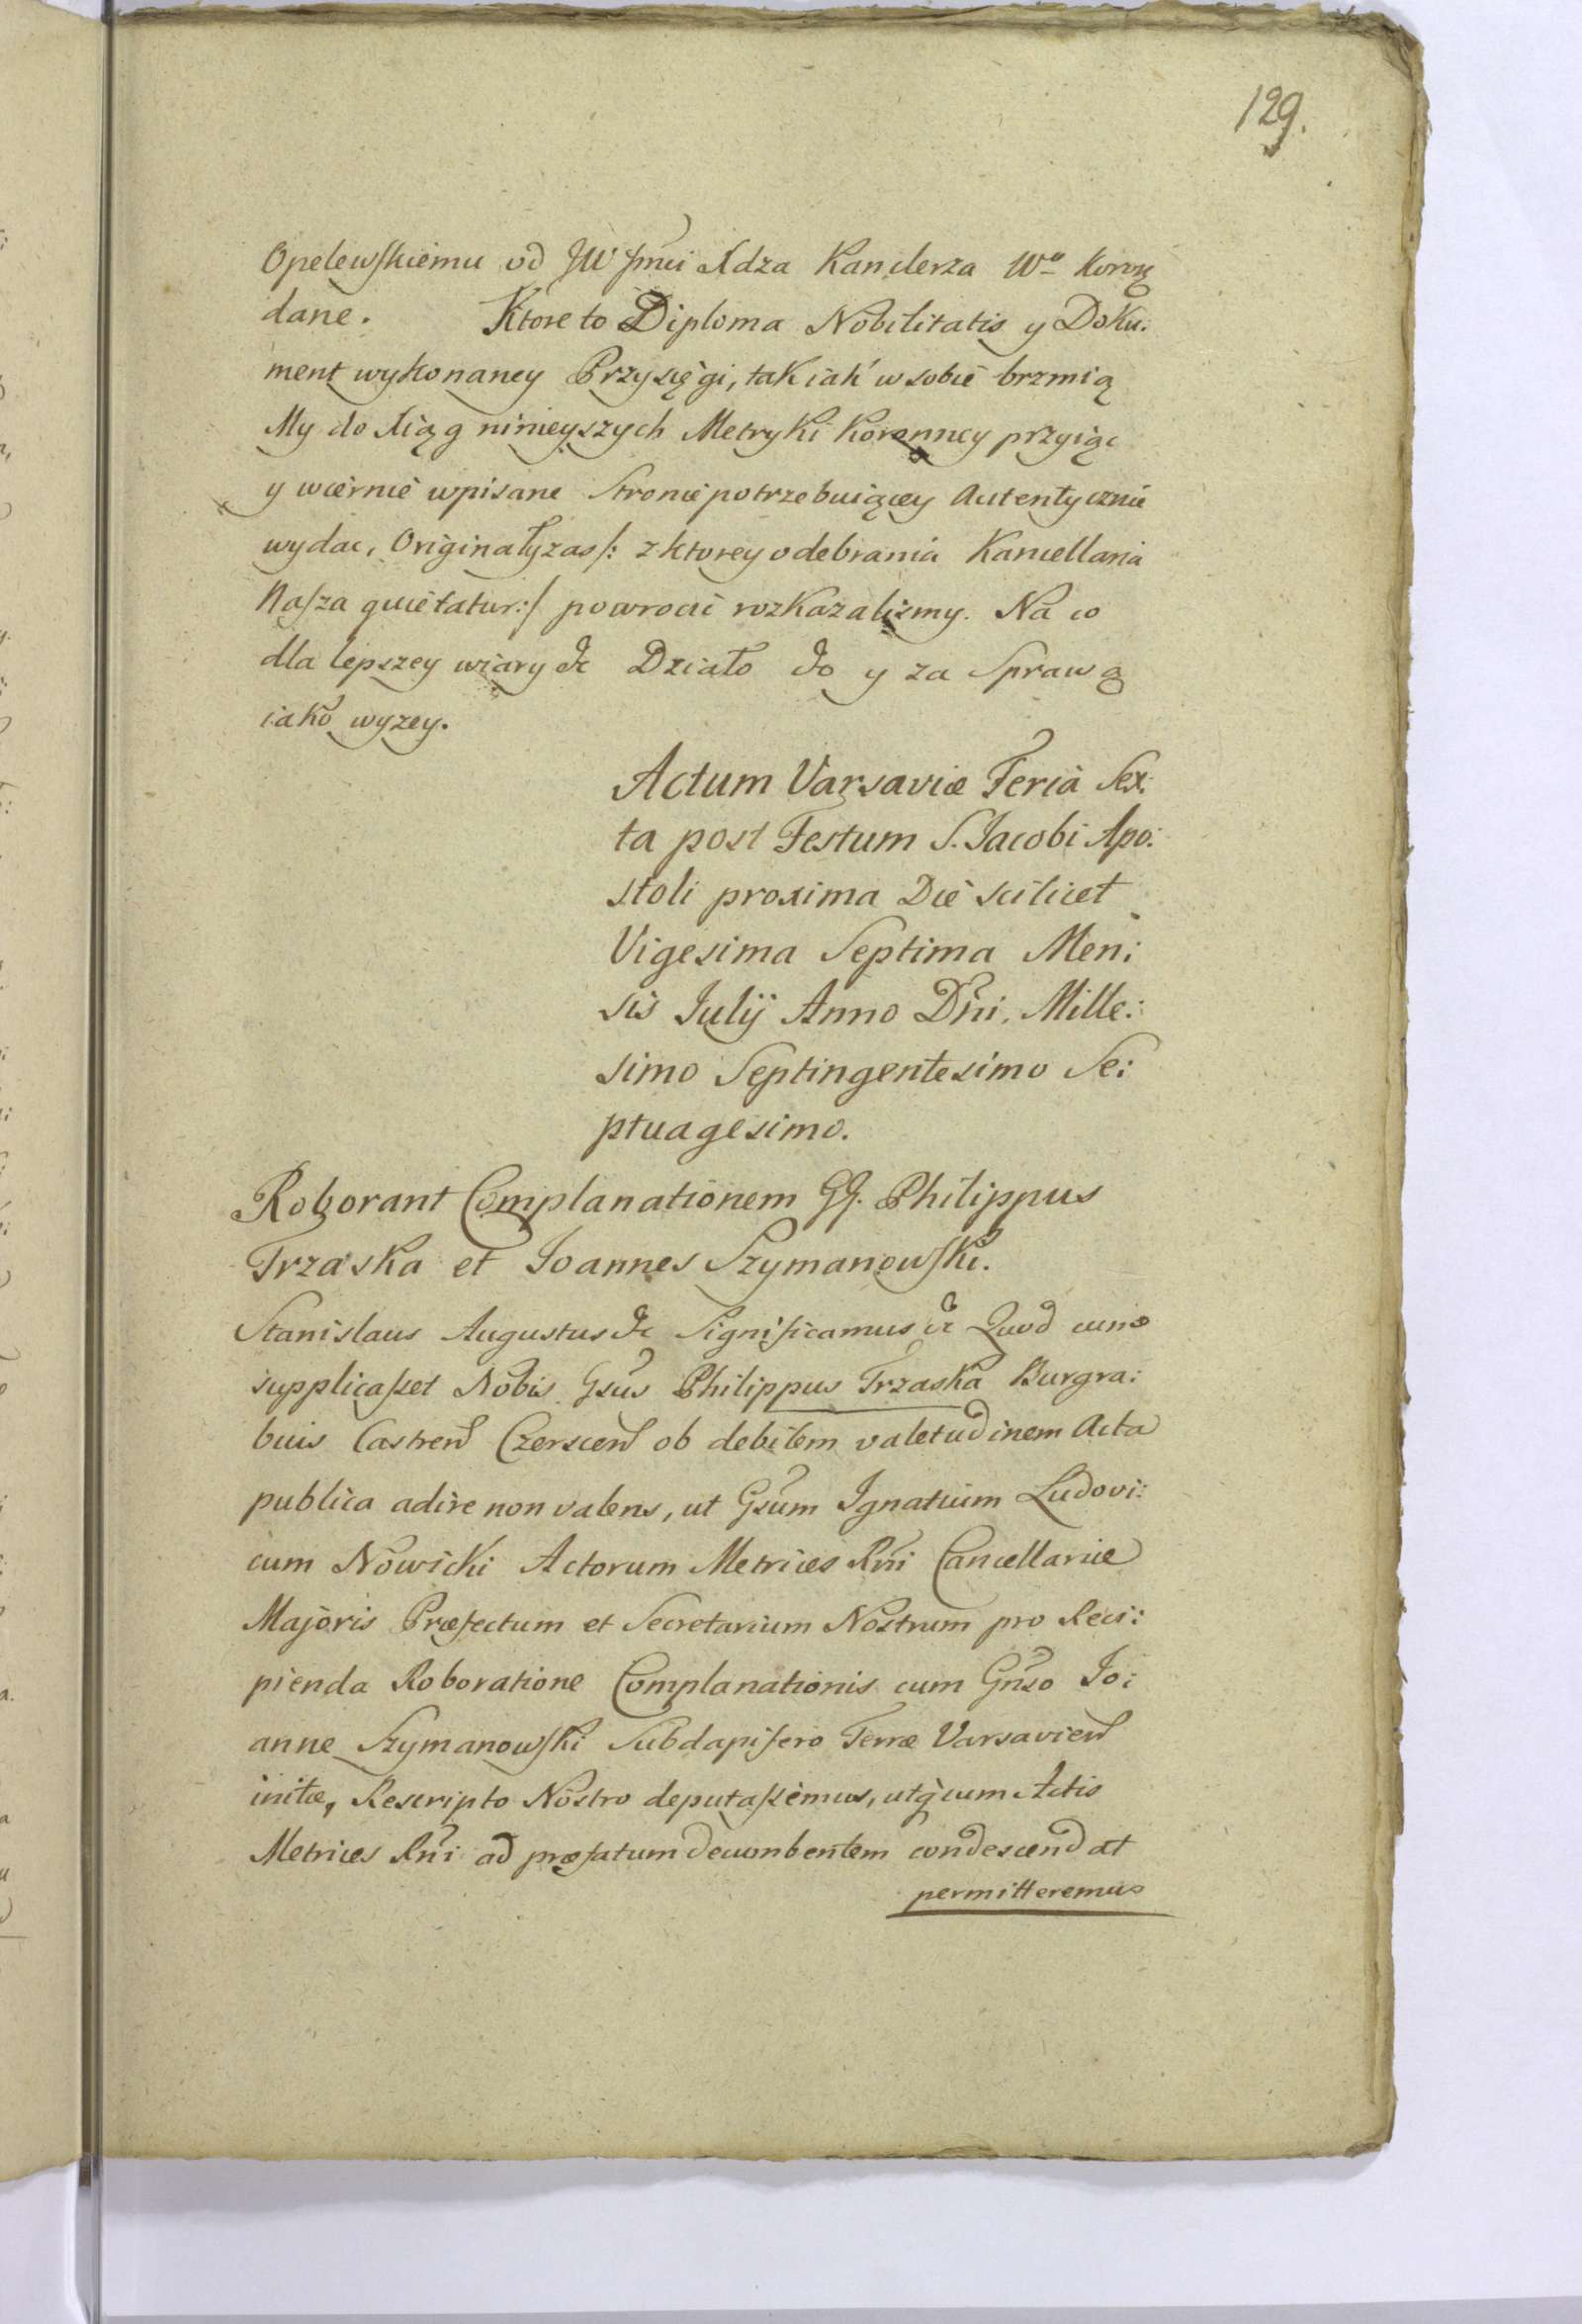 129.
Opelewskiemu od JW Jmci Xdza Kanclerza Wo Koron
dane. Ktore to Diploma Nobilitatis y Doku:
ment wykonaney Przysięgi, tak iak w sobie brzmią
My do Xiąg ninieyszych Metryki Koronney przyiąc
y wiernie wpisane Stronie potrzebuiącey Autentycznie
wydac, Originały zas /: z ktorey odebrania Kancellaria
Nasza quietatur :/ powrocic rozkazalismy. Na co
dla lepszey wiary &c Działo &o y za Sprawą
iako wyzey.
Actum Varsaviæ Feria Sex:
ta post Festum S. Jacobi Apo:
stoli proxima Die scilicet
Vigesima Septima Men:
sis Julÿ Anno Dni. Mille:
simo Septingentesimo Se:
ptuagesimo.
Roborant Complanationem GG. Philippus
Trzaska et Joannes Szymanowski.
Stanislaus Augustus &c Significamus &c Quod cum
supplicasset Nobis Gsus Philippus Trzaska Burgra:
bius Castren Czerscen ob debilem valetudinem Acta
publica adire non valens, ut Gsum Ignatium Ludovi:
cum Nowicki Actorum Metrices Rni Cancellariæ
Majoris Præfectum et Secretarium Nostrum pro Reci:
pienda Roboratione Complanationis cum Gnso Jo:
anne Szymanowski Subdapifero Terræ Varsavien
initæ, Rescripto Nostro deputassemus, utq cum Actis
Metrices Rni ad præfatum decumbentem condescendat
permitteremus